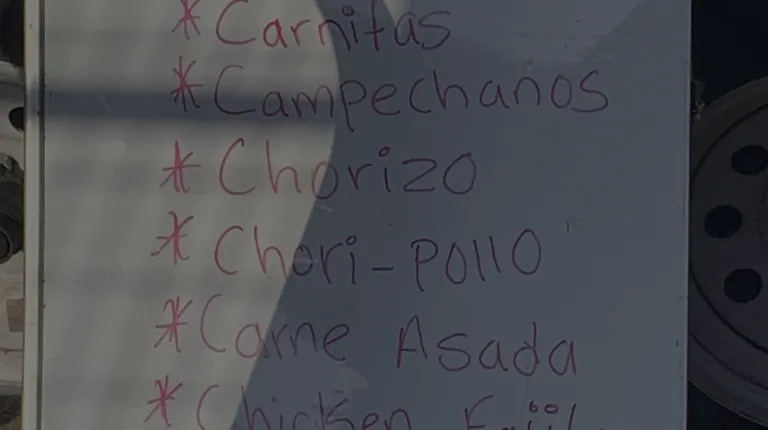 *Carnitas
*Campechanos
*Chorizo
*Chori-Pollo
*Carne Asada
*Chicken